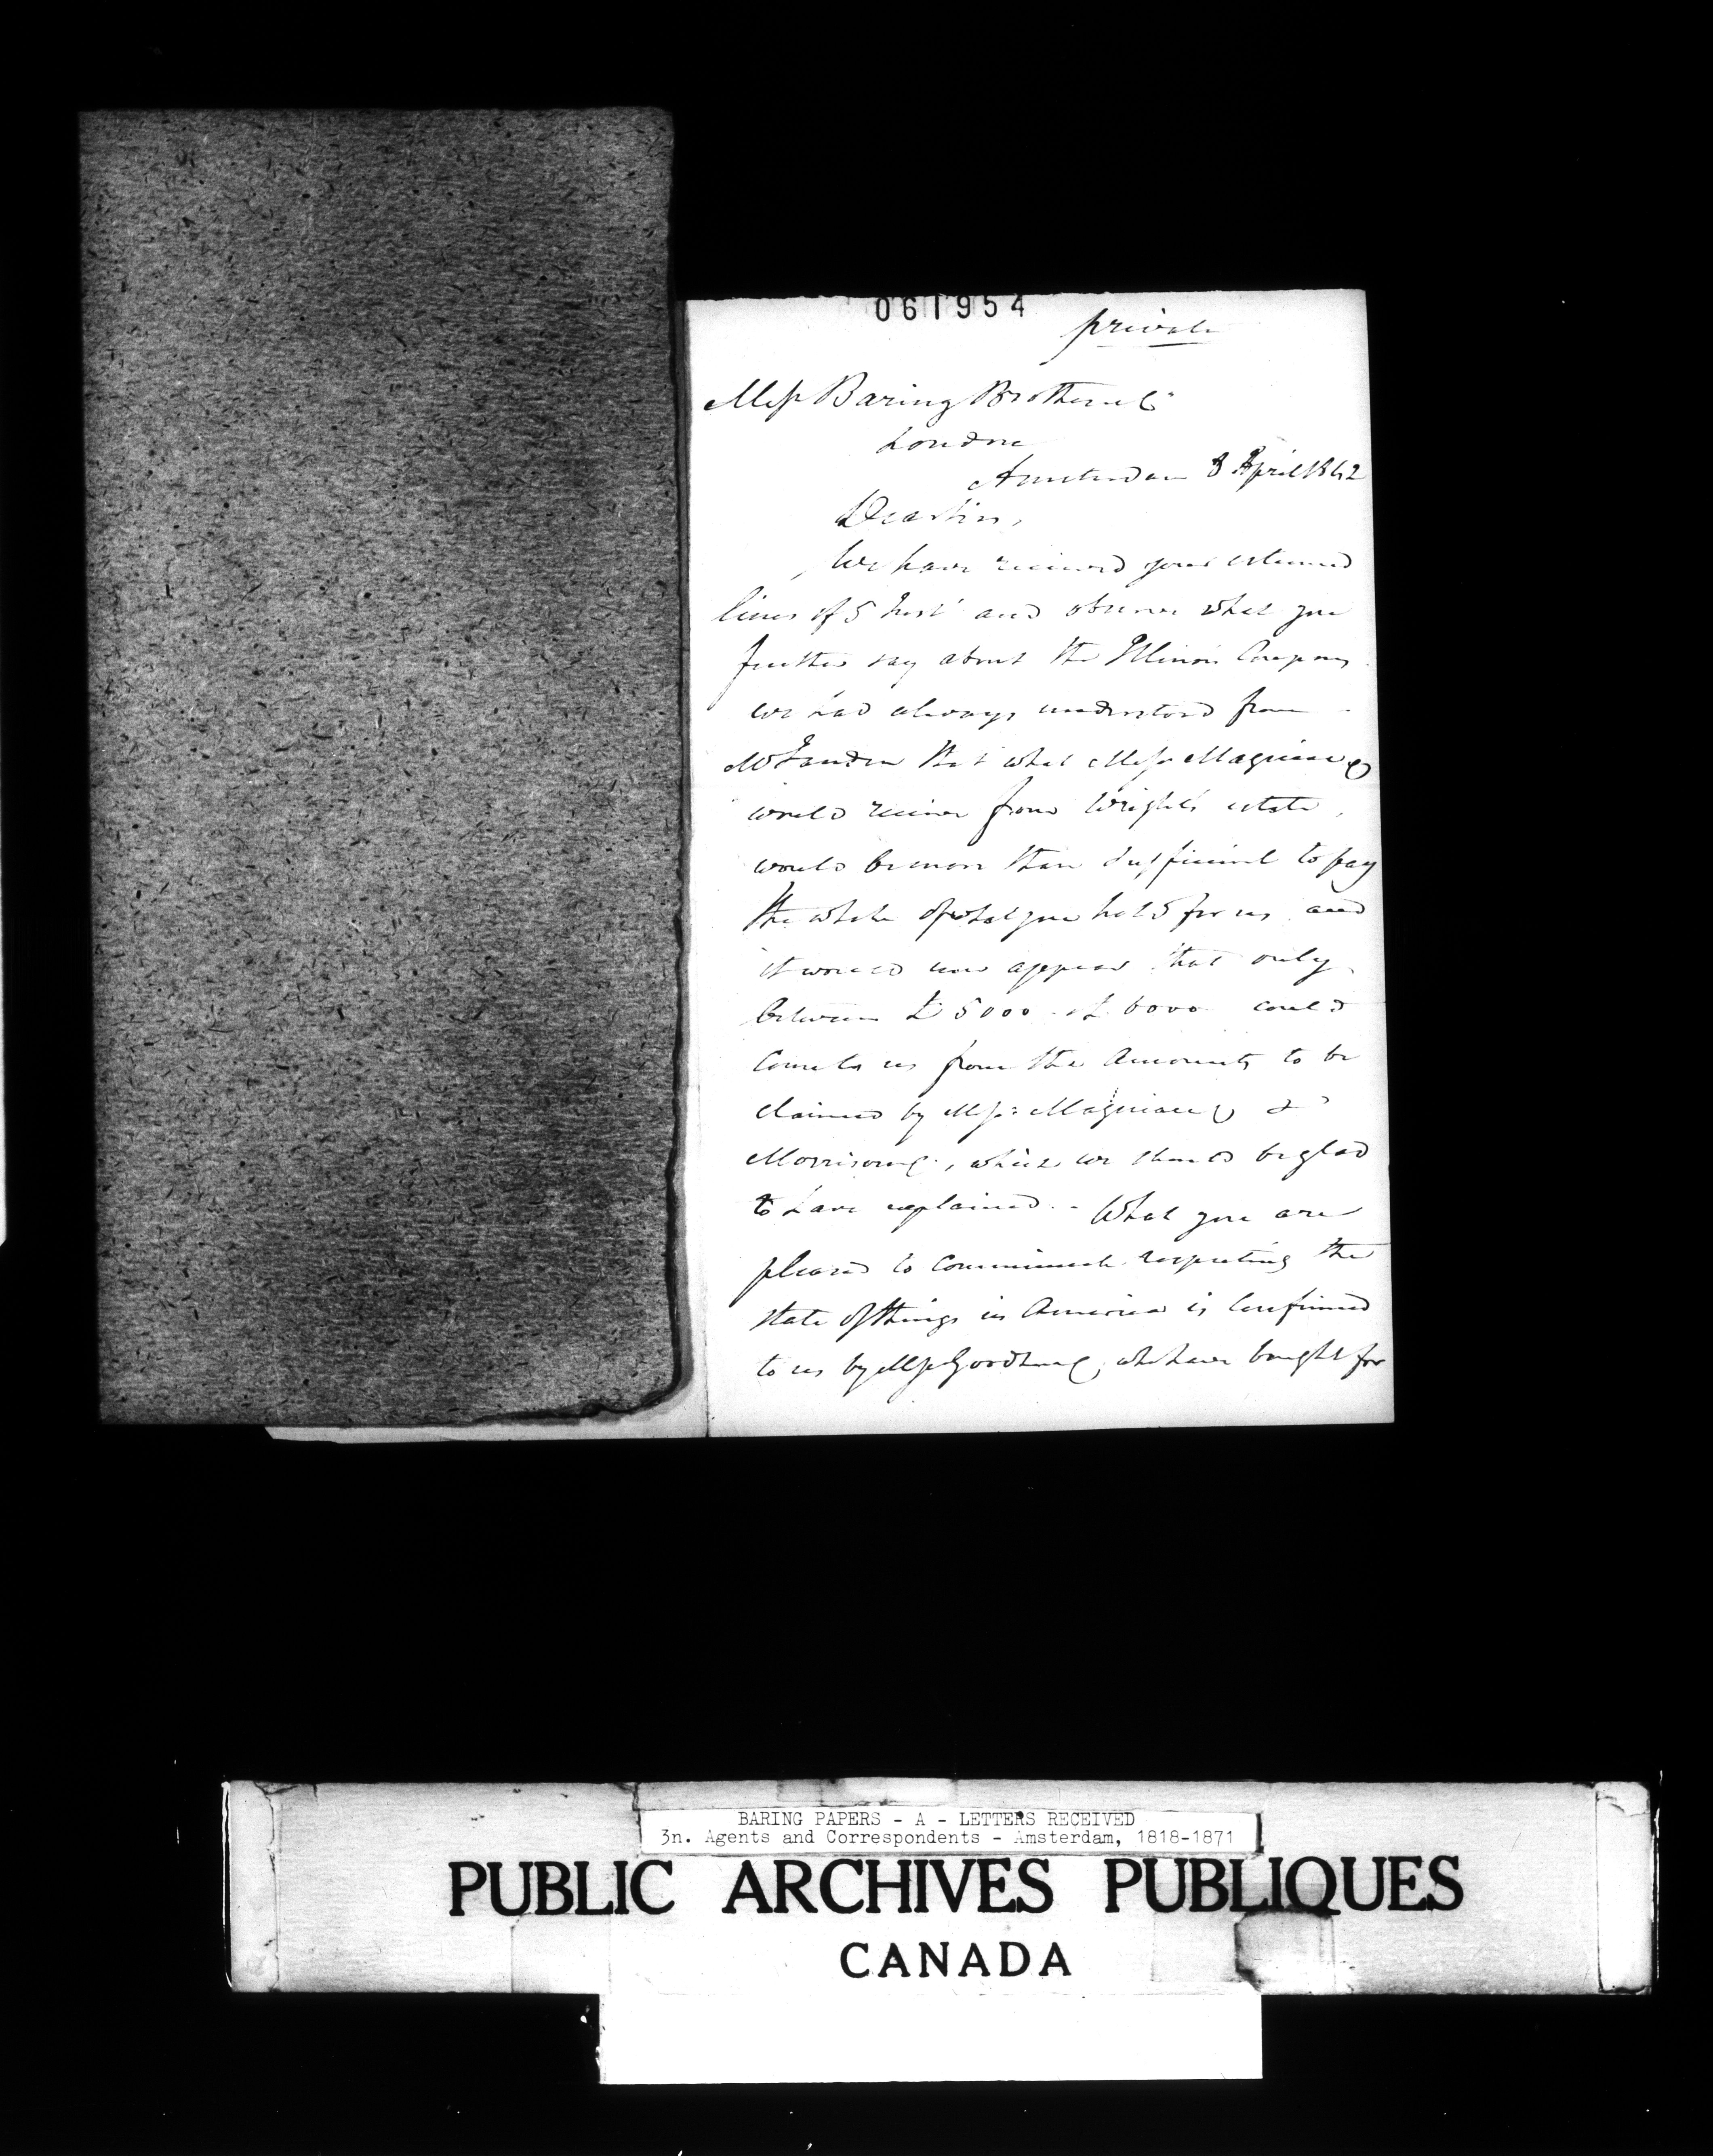 061954
private
Mess Baring Brothers & Co
London
Amsterdam 8 April 1842
Dear Sirs,
We have received your esteemed
lines of 5 Inst and observe what you
further say about the Illinois Coupons
we had always understood from
Mr that what Mess Magniac &
would receive from Wright's estate,
would be more than sufficient to pay
the whole of what you hold for us and
it would now appear that only
between £ 5000 & £ 6000 could
come to us from the Amounts to be
claimed by Mess: Magniac &
Morrison, which we should be glad
to have explained. - What you are
pleased to communicate respecting the
state of things in America is Confirmed
to us by Mess Goodhue, who have bought for
BARING PAPERS - A - LETTERS RECEIVED
3n. Agents and Correspondents - Amsterdam, 1818-1871
PUBLIC ARCHIVES PUBLIQUES
CANADA